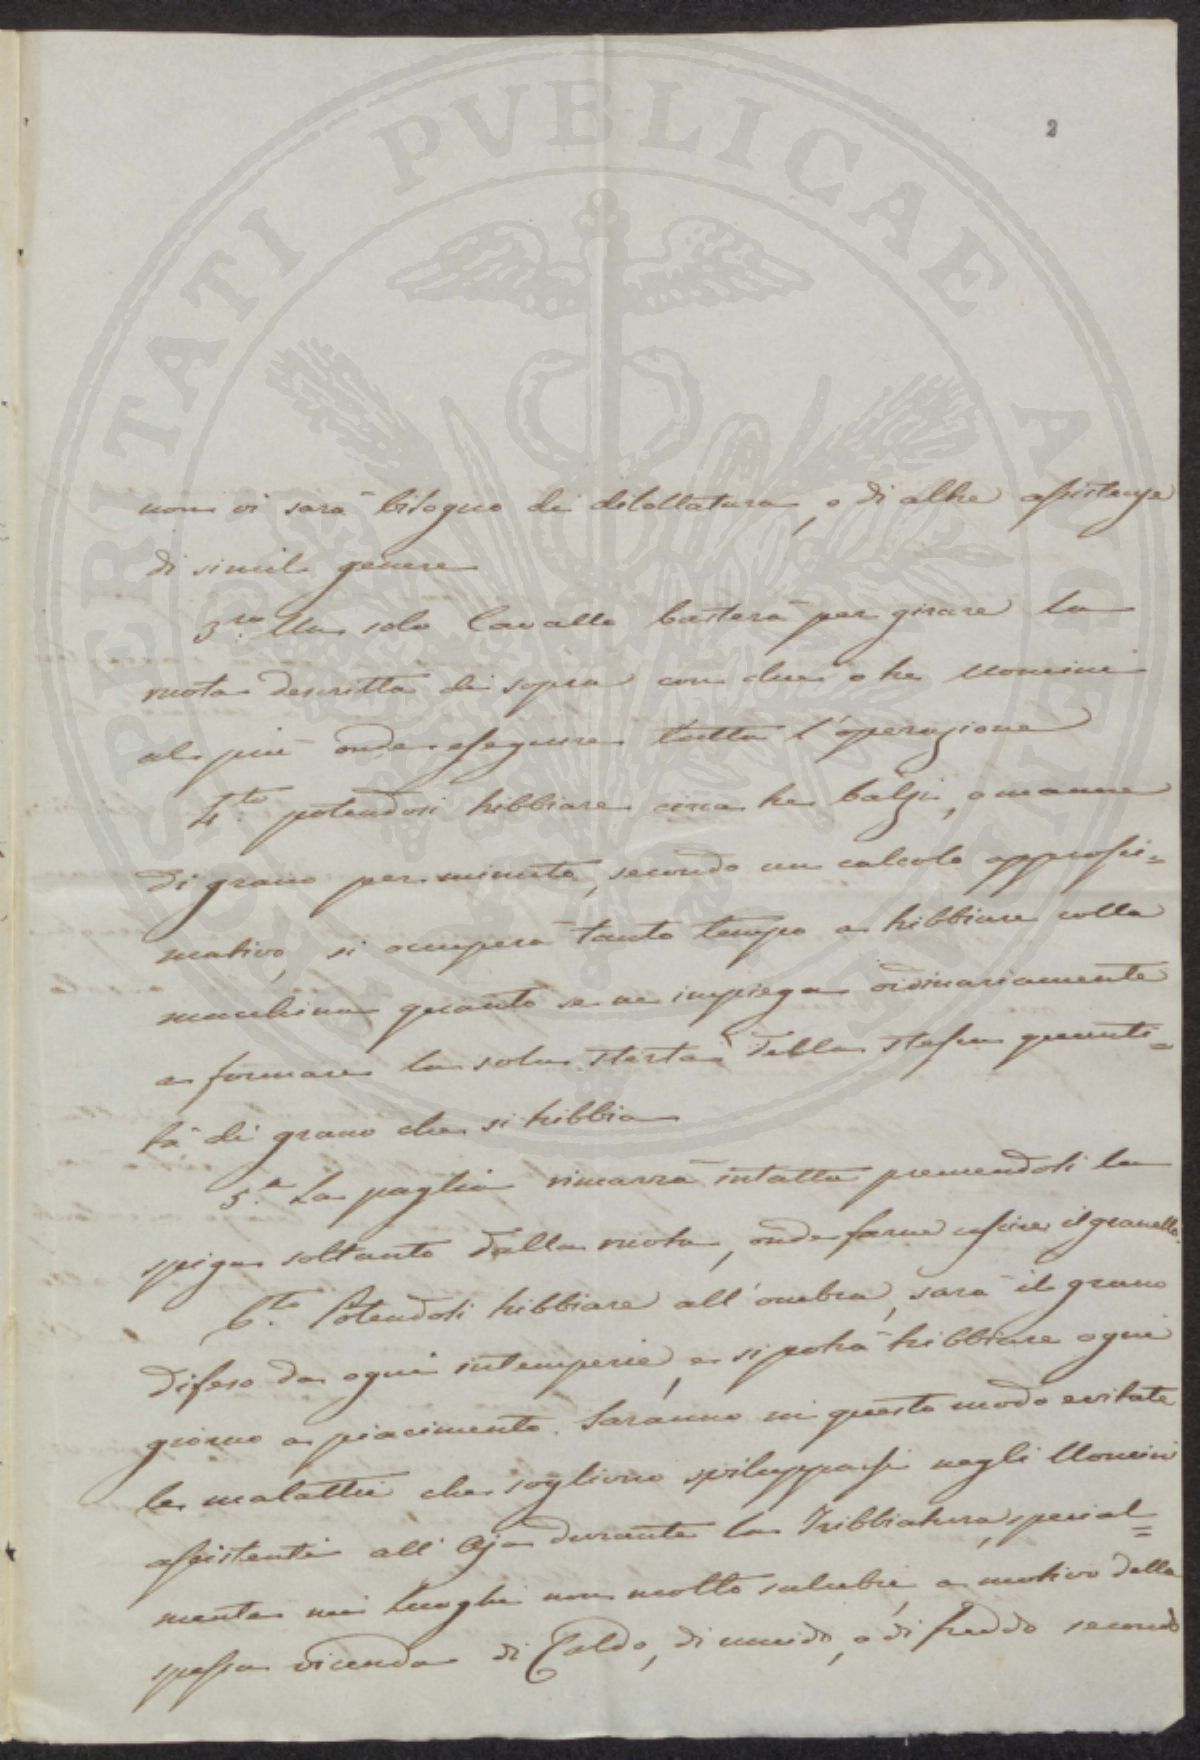 2
PROSPERITATI PVBLICAE AVGENDAE
non vi sarà bisogno di ditollatura, o di altre assistenze
di simil genere
3.zo Un solo Cavallo basterà per girare la
ruota descritta di sopra con due o tre Uomini
al più onde eseguire tutta l'operazione
4.to potendosi tribbiare circa tre balzi, o manne
di grano per minuto, secondo un calcolo approssi=
mativo, si occuperà tanto tempo a tribbiare colla
macchina quanto se ne impiega ordinariamente
a formare la sola sterta della stessa quanti=
tà di grano che si tribbia
5.a La paglia rimarrà intatta premendosi la
spiga soltanto dalla ruota, onde farne uscire il granello.
6.to Potendosi tribbiare all'ombra, sarà il grano
difeso da ogni intemperie, e si potrà tribbiare ogni
giorno a piacimento. Saranno in questo modo evitate
le malattie che sogliono svilupparsi negli Uomini
assistenti all'Aja durante la Tribbiatura, special=
mente nei Luoghi non molto salubri, a motivo della
spessa vicenda di Caldo, di umido, o di freddo secondo